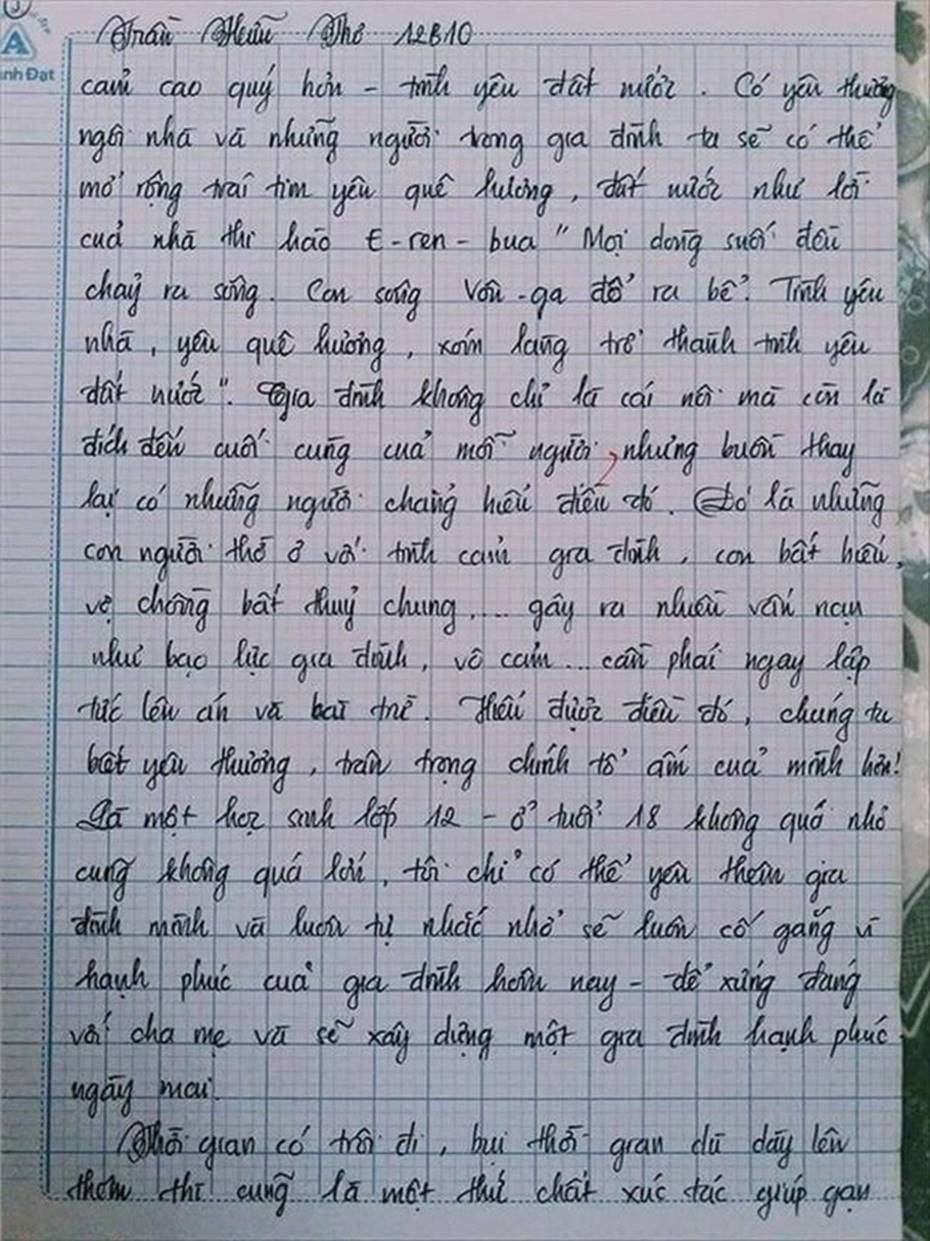 A
nh Đạt
Trần Hữu Thơ 12B10
cảm cao quý hơn - tình yêu đất nước. Có yêu thương
ngôi nhà và những người trong gia đình ta sẽ có thể
mở rộng trái tim yêu quê hương, đất nước như lời
của nhà thi hào E-ren-bua "Mọi dòng suối đều
chảy ra sông. Con sông Vôn-ga đổ ra bể. Tình yêu
nhà, yêu quê hương, xóm làng trở thành tình yêu
đất nước". Gia đình không chỉ là cái nôi mà còn là
đích đến cuối cùng của mỗi người, nhưng buồn thay
lại có những người chẳng hiểu điều đó. Đó là những
con người thờ ơ với tình cảm gia đình, con bất hiếu,
vợ chồng bất thuỷ chung,... gây ra nhiều vấn nạn
như bạo lực gia đình, vô cảm... cần phải ngay lập
tức lên án và bài trừ. Hiểu được điều đó, chúng ta
biết yêu thương, trân trọng chính tổ ấm của mình hơn!
Là một học sinh lớp 12 - ở tuổi 18 không quá nhỏ
cũng không quá lớn, tôi chỉ có thể yêu thêm gia
đình mình và luôn tự nhắc nhở sẽ luôn cố gắng vì
hạnh phúc của gia đình hôm nay - để xứng đáng
với cha mẹ và sẽ xây dựng một gia đình hạnh phúc
ngày mai.
Thời gian có trôi đi, bụi thời gian dù dày lên
thêm thì cũng là một thứ chất xúc tác giúp gạn